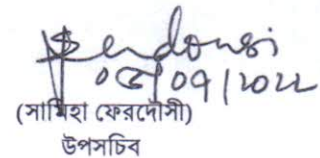 Ferdousi
০৫/০৭/২০২২
(সামিহা ফেরদৌসী)
উপসচিব